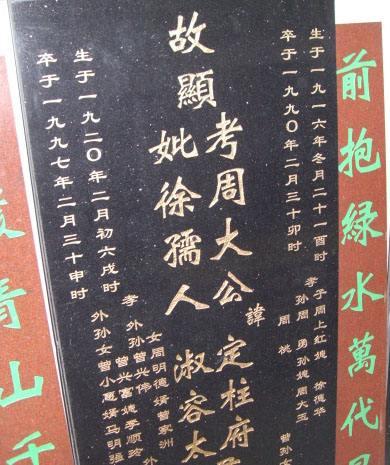 前抱綠水萬代
生于一九一六年冬月二十一酉时
卒于一九九〇年二月三十卯时
故顯
考周大公諱定柱府
妣徐孺人淑容太
生于一九二〇年二月初六戌时
卒于一九九七年二月三十申时
孝子周上红媳徐德华
孙周勇孙媳周大玉
周桃
曾孙女
女周明德婿曾家洲
外孙曾兴伟
孝外孙曾兴富媳李顺玲
外孙女曾小惠婿马明强
青山千